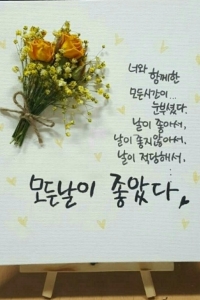 너와 함께한
모든시간이...
눈부셨다.
날이 좋아서,
날이 좋지않아서,
날이 적당해서,
모든날이 좋았다,